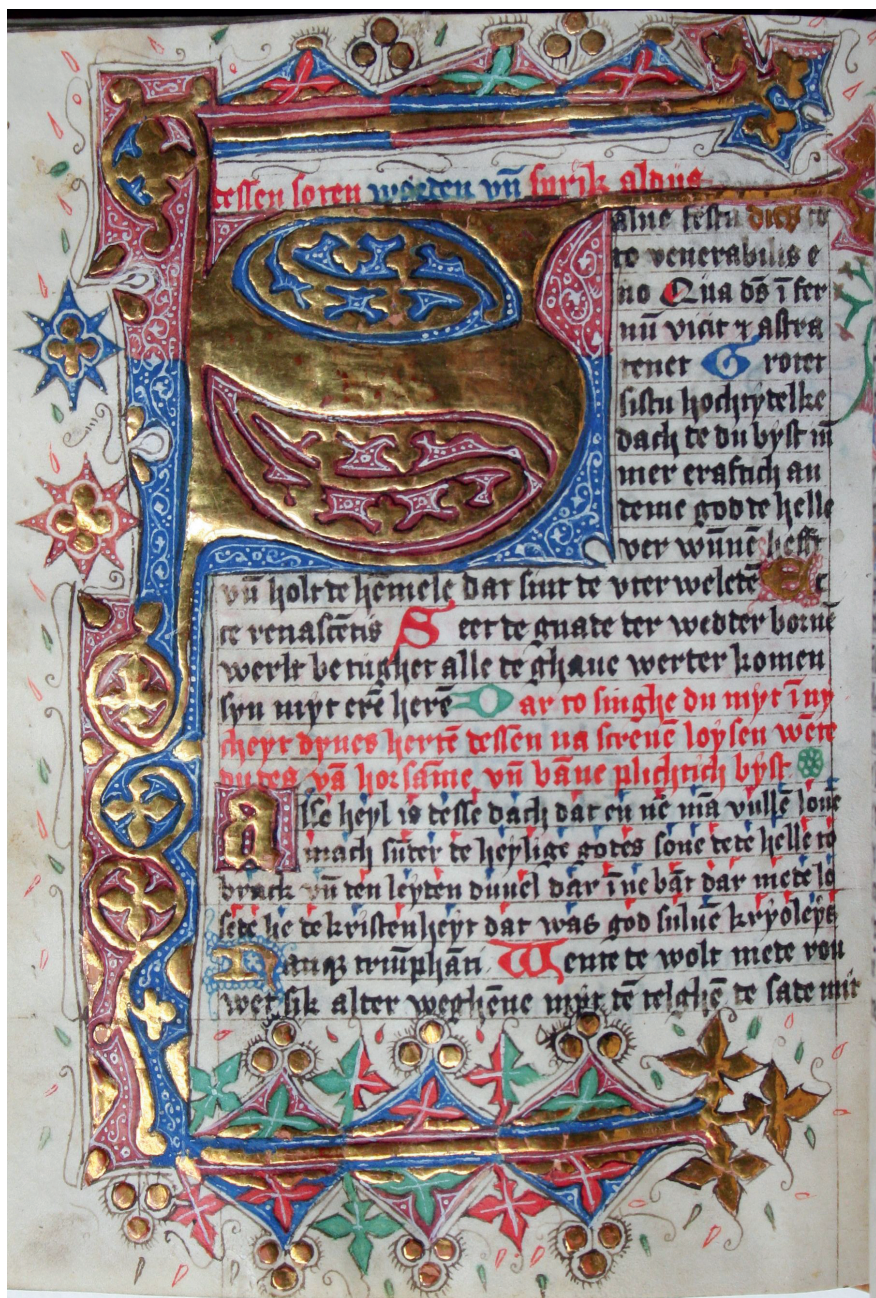 tessen soten worden vn̄ sprik aldus
alue festa dies to
to venerabilis e
no Qua ds̄ ī fer
nū vicit ⁊ astra
tenet Groter
sistu hochtytelke
dach te du byst ī
mer eraftich an
teme god te helle
ver wūnē hefft
vn̄ holt te hēmele dar sint te vter weletē Ec
ce renascētis Seet te gnate ter wedter bornē
werlt be tughet alle te ghaue werter komen
syn myt erē herē Dar to singhe du myt īny
cheyt dynes hertē tessen na screuē loysen wēte
du tes vā horsāme vn̄ vā ēe plichtich byst
Also heyl is tesse dach dat en nē mā vullē louē
mach sūter te heylige gotes sone te te helle to
brack vn̄ ten leyten duuel dar īne bāt dar mete lo
sete he te kristenheyt dat was god suluē kryoleys
Nanqꝫ triūphāti Wente te wolt mete vou
wet sik alter weghēne myt tē telghē te sate mit